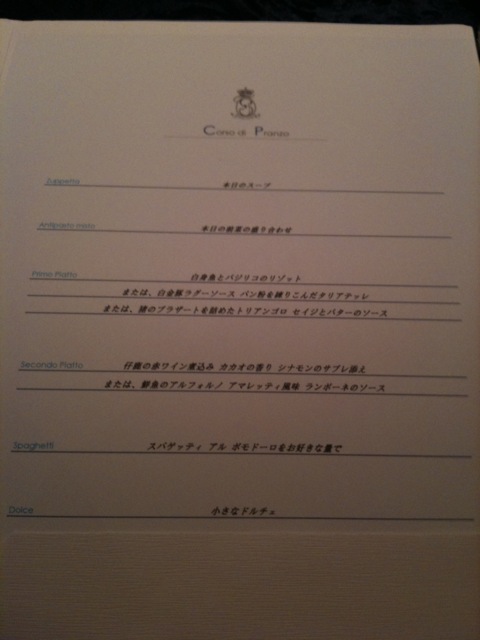 Corso di Pranzo
Zuppetta
本日のスープ
Antipasto misto
本日の前菜の盛り合わせ
Primo Piatto
白身魚とバジリコのリゾット
または、白金豚ラグーソース パン粉を練りこんだタリアテッレ
または、鴨のブラザートを詰めたトリアンゴロ セイジとバターのソース
Secondo Piatto
仔鹿の赤ワイン煮込み カカオの香り シナモンのサブレ添え
または、鮮魚のアルフォルノ アマレッティ風味 ランポーネのソース
Spaghetti
スパゲッティ アル ポモドーロをお好きな量で
Dolce
小さなドルチェ